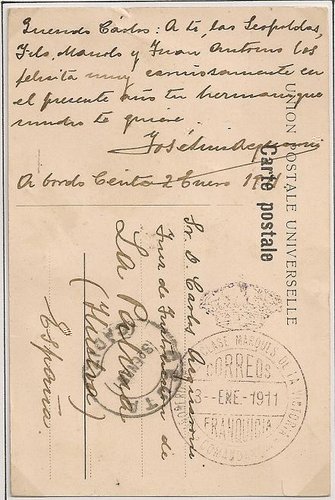 Querido Carlos: A ti, las Leopoldas,
Fila, Manolo y Juan Antonio los
felicita muy cariñosamente en
el presente año tu hermano que
mucho te quiere
José Luis
A bordo Ceuta 2 Enero 19
UNION POSTALE UNIVERSELLE
Carte postale
Sr. D. Carlos
Juez de Instrucción de
La Palma
(Huelva)
España.
MARQUES DE LA VICTORIA
CORREOS
3 - ENE - 1911
FRANQUICIA